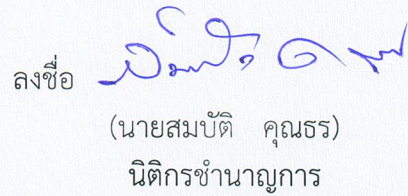 ลงชื่อ
(นายสมบัติ คุณธร)
นิติกรชำนาญการ